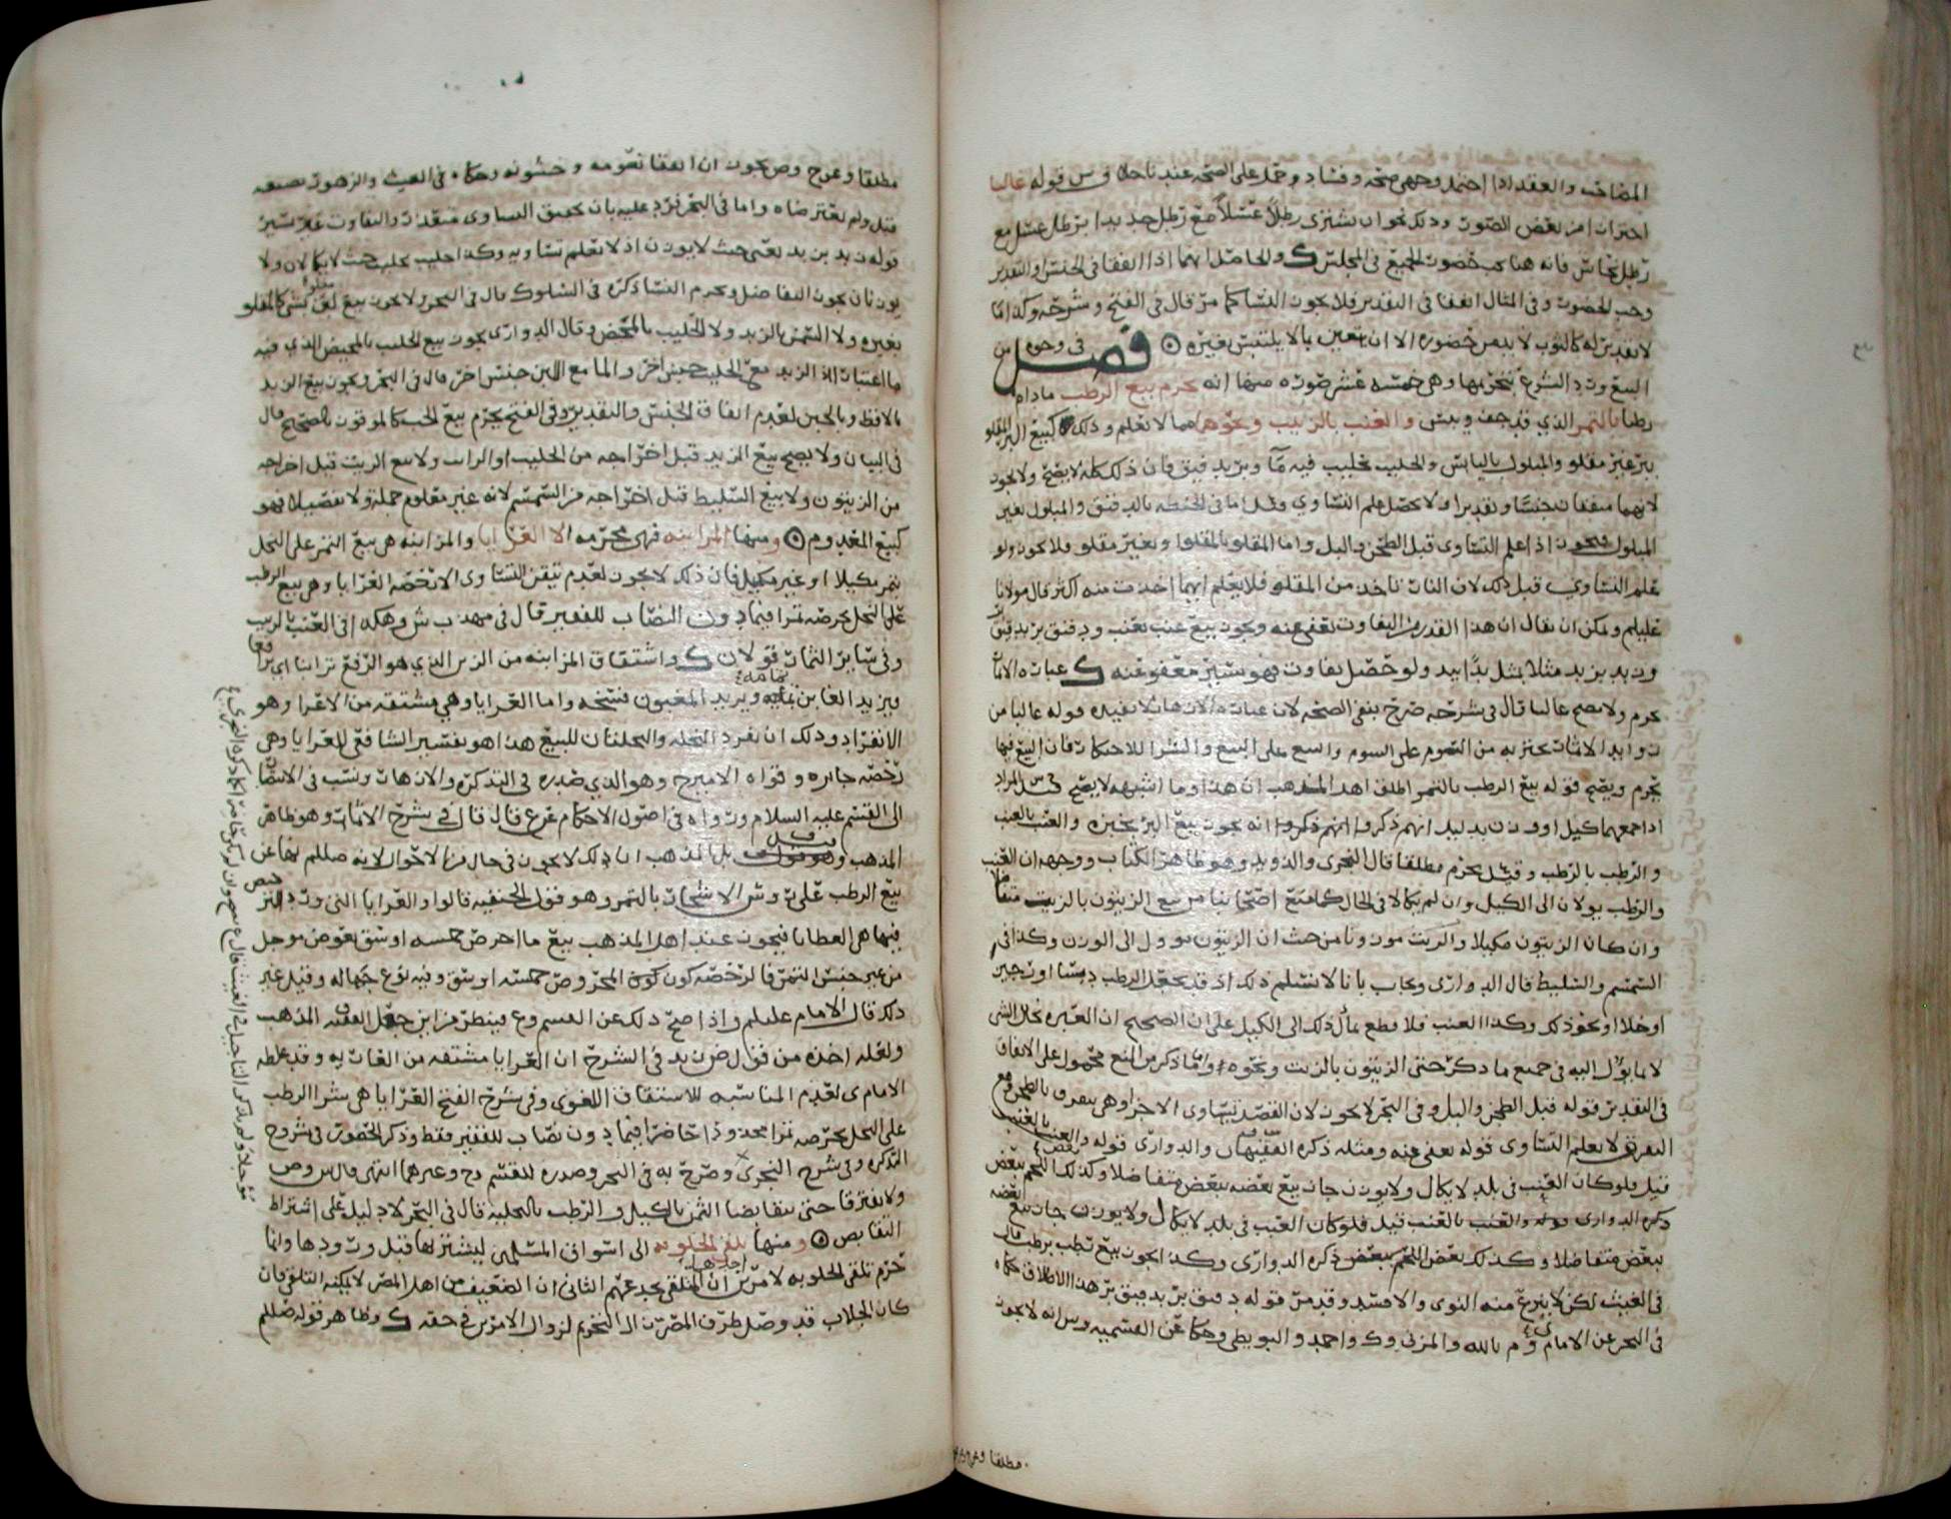 المضاف والعقد اذا احتمل وجهي صحه وفساد وحمل على الصحه عندنا قوله غالبا
احتراز من بعض الصور وذلك نحو ان يشتري رطلا عسلا مع رطل حديد برطل عسل مع
رطل نحاس فانه هنا يجب حضور الجميع في المجلس والحاصل انهما اذا اتفقا في الجنس والتقدير
وجب الحضور وفي المثال اتفقا في التقدير فلا يجوز النسا كما مر قال في الفتح وشرحه وكذا ما
لا تقدير له كالثوب لا بد من حضوره الا ان يتعين بما لا يلتبس بغيره فصل في وجوه من
البيع ورد الشرع بتحريمها وهي خمسه عشر صوره منها انه يحرم بيع الرطب مادام
رطبا بالتمر الذي قد جف ويبس والعنب بالزبيب ونحوهما مما لا نعلم وذلك كبيع البر المقلو
ببر غير مقلو والمبلول باليابس والحليب بحليب فيه ما وبر بدقيق فان ذلك كله لا يصح ولا يجوز
لانهما متفقان جنسا وتقديرا ولا يحصل علم التساوي وقيل اما في الحنطه بالدقيق والمبلول بغير
المبلول فيجوز اذا علم التساوي قبل الطحن والبل واما المقلو بالمقلو وبغير مقلو فلا يجوز ولو
علم التساوي قبل ذلك لان النار تاخذ من المقلو فلا يعلم ايهما اخذت منه اكثر قال مولانا
عليلم ويمكن ان يقال ان هذا القدر من التفاوت يعفى عنه ويجوز بيع عنب بعنب ودقيق بدقيق
وزبد بزبد مثلا بمثل يدا بيد ولو حصل تفاوت فهو يسير معفو عنه عباره الاثمار
يحرم ولا يصح غالبا قال في شرحه صرح بنفي الصحه لان عباره الازهار لا تفيده قوله غالبا من
زوايد الاثمار يحترز به من السوم على السوم والبيع على البيع والشرا للاحتكار فان البيع فيها
يحرم ويصح قوله بيع الرطب بالتمر اطلق اهل المذهب ان هذا وما اشبهه لا يصح المراد
اذا جمعهما كيل او وزن بدليل انهم ذكروا انه يجوز بيع البر بخبزه والعنب بالعنب
والرطب بالرطب وقيل يحرم مطلقا قال النجري والذويد وهو ظاهر الكتاب ووجهه ان العنب
والرطب يولان الى الكيل وان لم يكالا في الحال كما منع اصحابنا من بيع الزيتون بالزيت متفاضلا
وان كان الزيتون مكيلا والزيت موزونا من حيث ان الزيتون يوول الى الوزن وكذا في
السمسم والسليط قال الدواري ويجاب بانا لا نسلم ذلك اذ قد يجعل الرطب دبسا او
او خلا او نحو ذلك وكذا العنب فلا قطع بمال ذلك الى الكيل على ان الصحيح ان العبره بحال الشي
لا بما يؤل اليه في جميع ما ذكر حتى الزيتون بالزيت ونحوه وما ذكر من المنع محمول على الاتفاق
في التقدير قوله قبل الطحن والبل وفي البحر لا يجوز لان القصد تساوي الاجزا وهي بالطحن ومع
التفرق لا يعلم التساوي قوله يعفى عنه ومثله ذكره الفقيهان والدواري قوله والعنب بالعنب
قيل فلو كان العنب في بلد لا يكال ولا يوزن جاز بيع بعضه ببعض متفاضلا وكذلك اللحم ببعض
ذكره الدواري قوله والعنب بالعنب قيل فلو كان العنب في بلد لا يكال ولا يوزن جاز بيع بعضه
ببعض متفاضلا وكذلك بعض اللحم ببعض ذكره الدواري وكذا يجوز بيع رطب برطب قال
في الغيث لكن لا ينزع منه النوى والا فسد وقد مر قوله دقيق بر بدقيق بر هذا الاطلاق حكاه
في البحر عن الامام وم بالله والمزني وك واحمد والبويطي وحكا عن القسميه وش انه لا يجوز
مطلقا
مطلقا وعن ح وص يجوز ان اتفقا نعومه وخشونه وحكاه في الغيث والزهور بصيغه
قيل ولم يعترضاه واما في البحر فرد عليه بان تحقيق التساوي متعذر والتفاوت غير يسير
قوله زبد بزبد يعني حيث لا يوزن اذ لا نعلم تساويه وكذا حليب بحليب حيث لا يكالان ولا
يوزنان يجوز التفاضل ويحرم النسا ذكره في السلوك قال في البحر ولا يجوز بيع مقلو كالمقلو
بغيره ولا السمن بالزبد ولا الحليب بالمخيض وقال الدواري يجوز بيع الحليب بالمخيض الذي فيه
ما اعتبارا اذ الزبد مع الحليب جنس اخر والما مع اللبن جنس اخر قال في البحر ويجوز بيع الزبد
بالاقط وبالجبن لعدم اتفاق الجنس والتقدير وفي الفتح يحرم بيع الحب كالموقوز بالصحيح قال
في البيان ولا يصح بيع الزبد قبل اخراجه من الحليب او الرايب ولا بيع الزيت قبل اخراجه
من الزيتون ولا بيع السليط قبل اخراجه من السمسم لانه غير معلوم جمله ولا تفصيلا فهو
كبيع المعدوم ومنها المزابنه فهي محرمه الا العرايا والمزابنه هي بيع التمر على النخل
بتمر مكيلا او غير مكيل فان ذلك لا يجوز لعدم تيقن التساوي الا رخصه العرايا وهي بيع الرطب
على النخل بخرصه تمرا فيما دون النصاب للفقير قال في مهذب ش وهكذا في العنب بالزبيب
وفي ساير الثمار قولان واشتقاق المزابنه من الزبن الذي هو الدفع ترافعا
ويريد الغابن تمامه ويريد المغبون فسخه واما العرايا وهي مشتقه من الاعرا وهو
الانفراد وذلك ان تفرد النخله والنخلتان للبيع هذا هو تفسير الشافعي للعرايا وهي
رخصه جايزه وقواه الامير ح وهو الذي صدره في التذكره والازهار ونسب في الانتصار
الى القسم عليه السلام ورواه في اصول الاحكام عن ع قال قال في شرح الاثمار وهو ظاهر
المذهب وقيل بل المذهب ان ذلك لا يجوز في حال من الاحوال لانه صللم نهى عن
بيع الرطب على روس الاشجار بالتمر وهو قول الحنفيه قالوا والعرايا التي ورد الترخيص
فيها هي العطايا فيجوز عند اهل المذهب بيع ما خرص خمسه اوسق بعوض موجل
من غير جنس التمر فالرخصه كون المخروص خمسه اوسق وفيه نوع جهاله وقيل غير
ذلك قال الامام عليلم واذا صح ذلك عن القسم وع فينظر من اين جعل الفقيه ف المذهب
ولعله اخذه من قول ض زيد في الشرح ان العرايا مشتقه من العاريه وقد غلطه
الامام ي لعدم المناسبه للاشتقاق اللغوي وفي شرح الفتح العرايا هي شرا الرطب
على النخل بخرصه تمرا مجذوذا حاضرا فيما دون نصاب للفقير فقط وذكر الحضور في شروح
التذكره وفي شرح النجري وصرح به في البحر وصدره للقسم وح وغيرهما انتهى قال ش وص
ولا يفترقا حتى يتقابضا الثمن بالكيل والرطب بالتخليه قال في البحر لا دليل على اشتراط
التقابض ومنها تلقي الجلوبه الى اسواق المسلمين ليشتريها قبل ورودها وانما
حرم تلقي الجلوبه لامرين احدهما ان المتلقي يخدعهم الثاني ان الضعيف من اهل المصر لا يمكنه التلقي فان
كان الجلاب قد وصل طرف المصر زال التحريم لزوال الامرين في حقه وظاهر قوله صللم